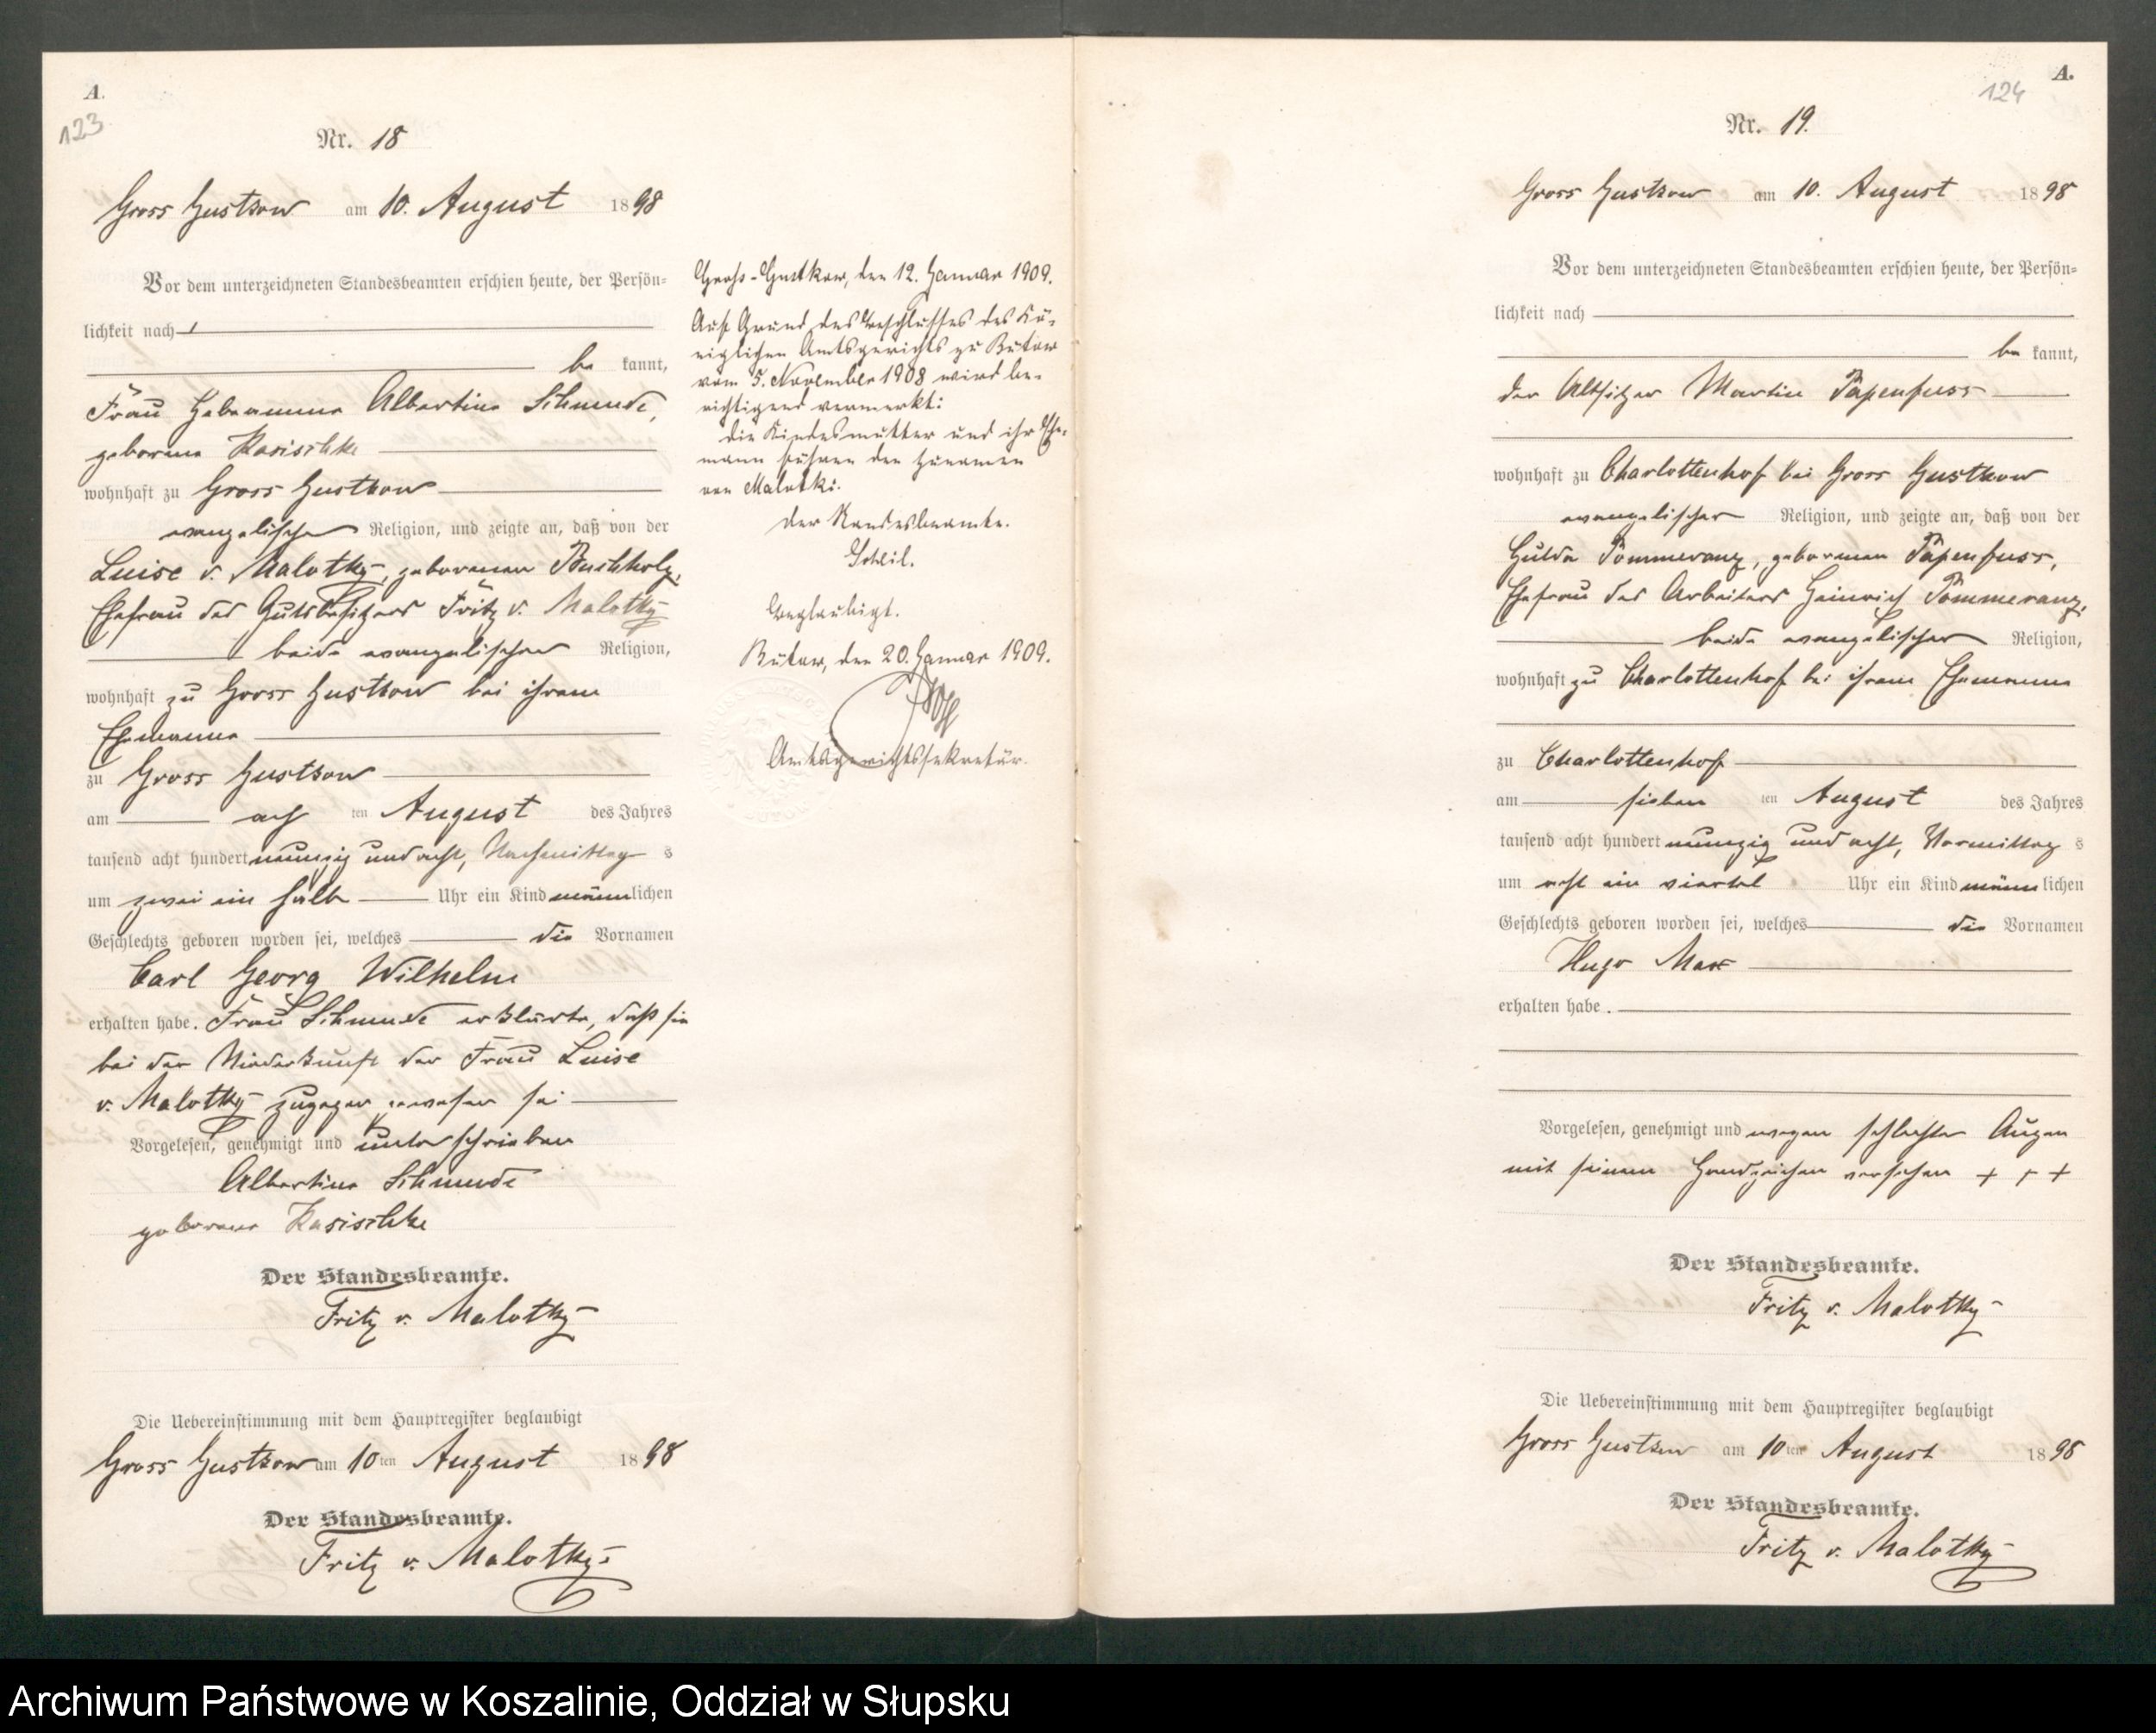 A.
123
Nr. 18
Gross Gustkow am 10. August 1898
Vor dem unterzeichneten Standesbeamten erschien heute, der Persön-
lichkeit nach
be kannt,
Frau Hebeamme Albertine Schmude,
geborene Kasischke
wohnhaft zu Gross Gustkow
evangelischer Religion, und zeigte an, daß von der
Luise v. Malotky, geborenen Buchholz,
Ehefrau des Gutsbesitzers Fritz v. Malotky
beide evangelischer Religion,
wohnhaft zu Gross Gustkow bei ihrem
Ehemanne
zu Gross Gustkow
am acht ten August des Jahres
tausend acht hundert neunzig und acht, Nachmittag s
um zwei ein halb Uhr ein Kind männlichen
Geschlechts geboren worden sei, welches die Vornamen
Carl Georg Wilhelm
erhalten habe. Frau Schmude erklärte, daß sie
bei der Niederkunft der Frau Luise
v. Malotky zugegen gewesen sei
Vorgelesen, genehmigt und unterschrieben
Albertine Schmude
geborene Kasischke
Der Standesbeamte.
Fritz v. Malotky
Die Uebereinstimmung mit dem Hauptregister beglaubigt
Gross Gustkow am 10ten August 1898
Der Standesbeamte.
Fritz v. Malotky
Gross-Gustkow, den 12. Januar 1909.
Auf Grund des Beschlusses des Kö-
niglichen Amtsgerichts zu Bütow
vom 5. November 1908 wird be-
richtigend vermerkt:
die Kindesmutter und ihr Ehe-
mann führen den Zunamen
von Malotki.
Der Standesbeamte.
Beglaubigt.
Bütow, den 20. Januar 1909.
Amtsgerichtssekretär.
A.
124
Nr. 19.
Gross Gustkow am 10. August 1898
Vor dem unterzeichneten Standesbeamten erschien heute, der Persön-
lichkeit nach
be kannt,
der Altsitzer Martin Papenfuss
wohnhaft zu Charlottenhof bei Gross Gustkow
evangelischer Religion, und zeigte an, daß von der
Hulda Pommeranz, geborenen Papenfuss,
Ehefrau des Arbeiters Heinrich Pommeranz,
beide evangelischer Religion,
wohnhaft zu Charlottenhof bei ihrem Ehemanne
zu Charlottenhof
am sieben ten August des Jahres
tausend acht hundert neunzig und acht, Vormittag s
um acht ein viertel Uhr ein Kind männlichen
Geschlechts geboren worden sei, welches die Vornamen
Hugo Max
erhalten habe.
Vorgelesen, genehmigt und wegen schlechter Augen
mit seinem Handzeichen versehen + + +
Der Standesbeamte.
Fritz v. Malotky
Die Uebereinstimmung mit dem Hauptregister beglaubigt
Gross Gustkow am 10ten August 1898
Der Standesbeamte.
Fritz v. Malotky
Archiwum Państwowe w Koszalinie, Oddział w Słupsku